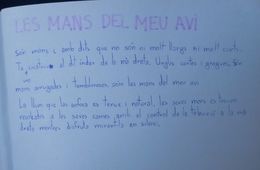 LES MANS DEL MEU AVI
Són mans i amb dits que no són ni molt llargs ni molt curts.
Té al dit índex de la mà dreta. Ungles curtes i gragues, són
mans arrugades i tremoloses són les mans del meu avi
La llum que les enfoca és tènue i natural, les seves mans es troben
recolzades a les seves cames amb el control de la televisió a la mà
dreta mentres disfruta mirant-la en silenci.